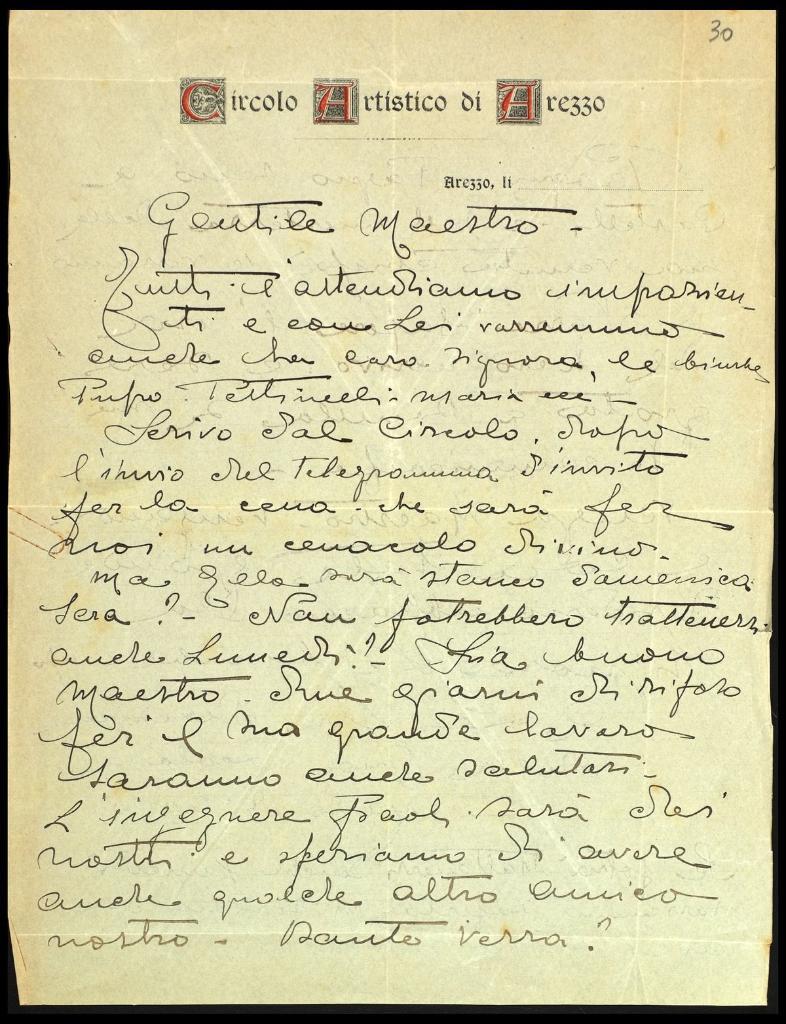 30
Circolo Artistico di Arezzo
Arezzo, li
Gentile Maestro -
Tutti l'attendiamo impazien-
ti e con Lei vorremmo
anche la cara Signora, le bimbe
Pupo - Pettinelli - Maria ecc -
Scrivo dal Circolo, dopo
l'invio del telegramma d'invito
per la cena - che sarà per
noi un cenacolo divino -
Ma Ella sarà stanco domenica
sera? - Non potrebbero trattenersi
anche Lunedi? - Sia buono
Maestro - due giorni di riposo
per il suo grande lavoro
saranno anche salutari -
L'ingegnere Paoli sarà dei
nostri e speriamo di avere
anche qualche altro amico
nostro - Dante verrà?